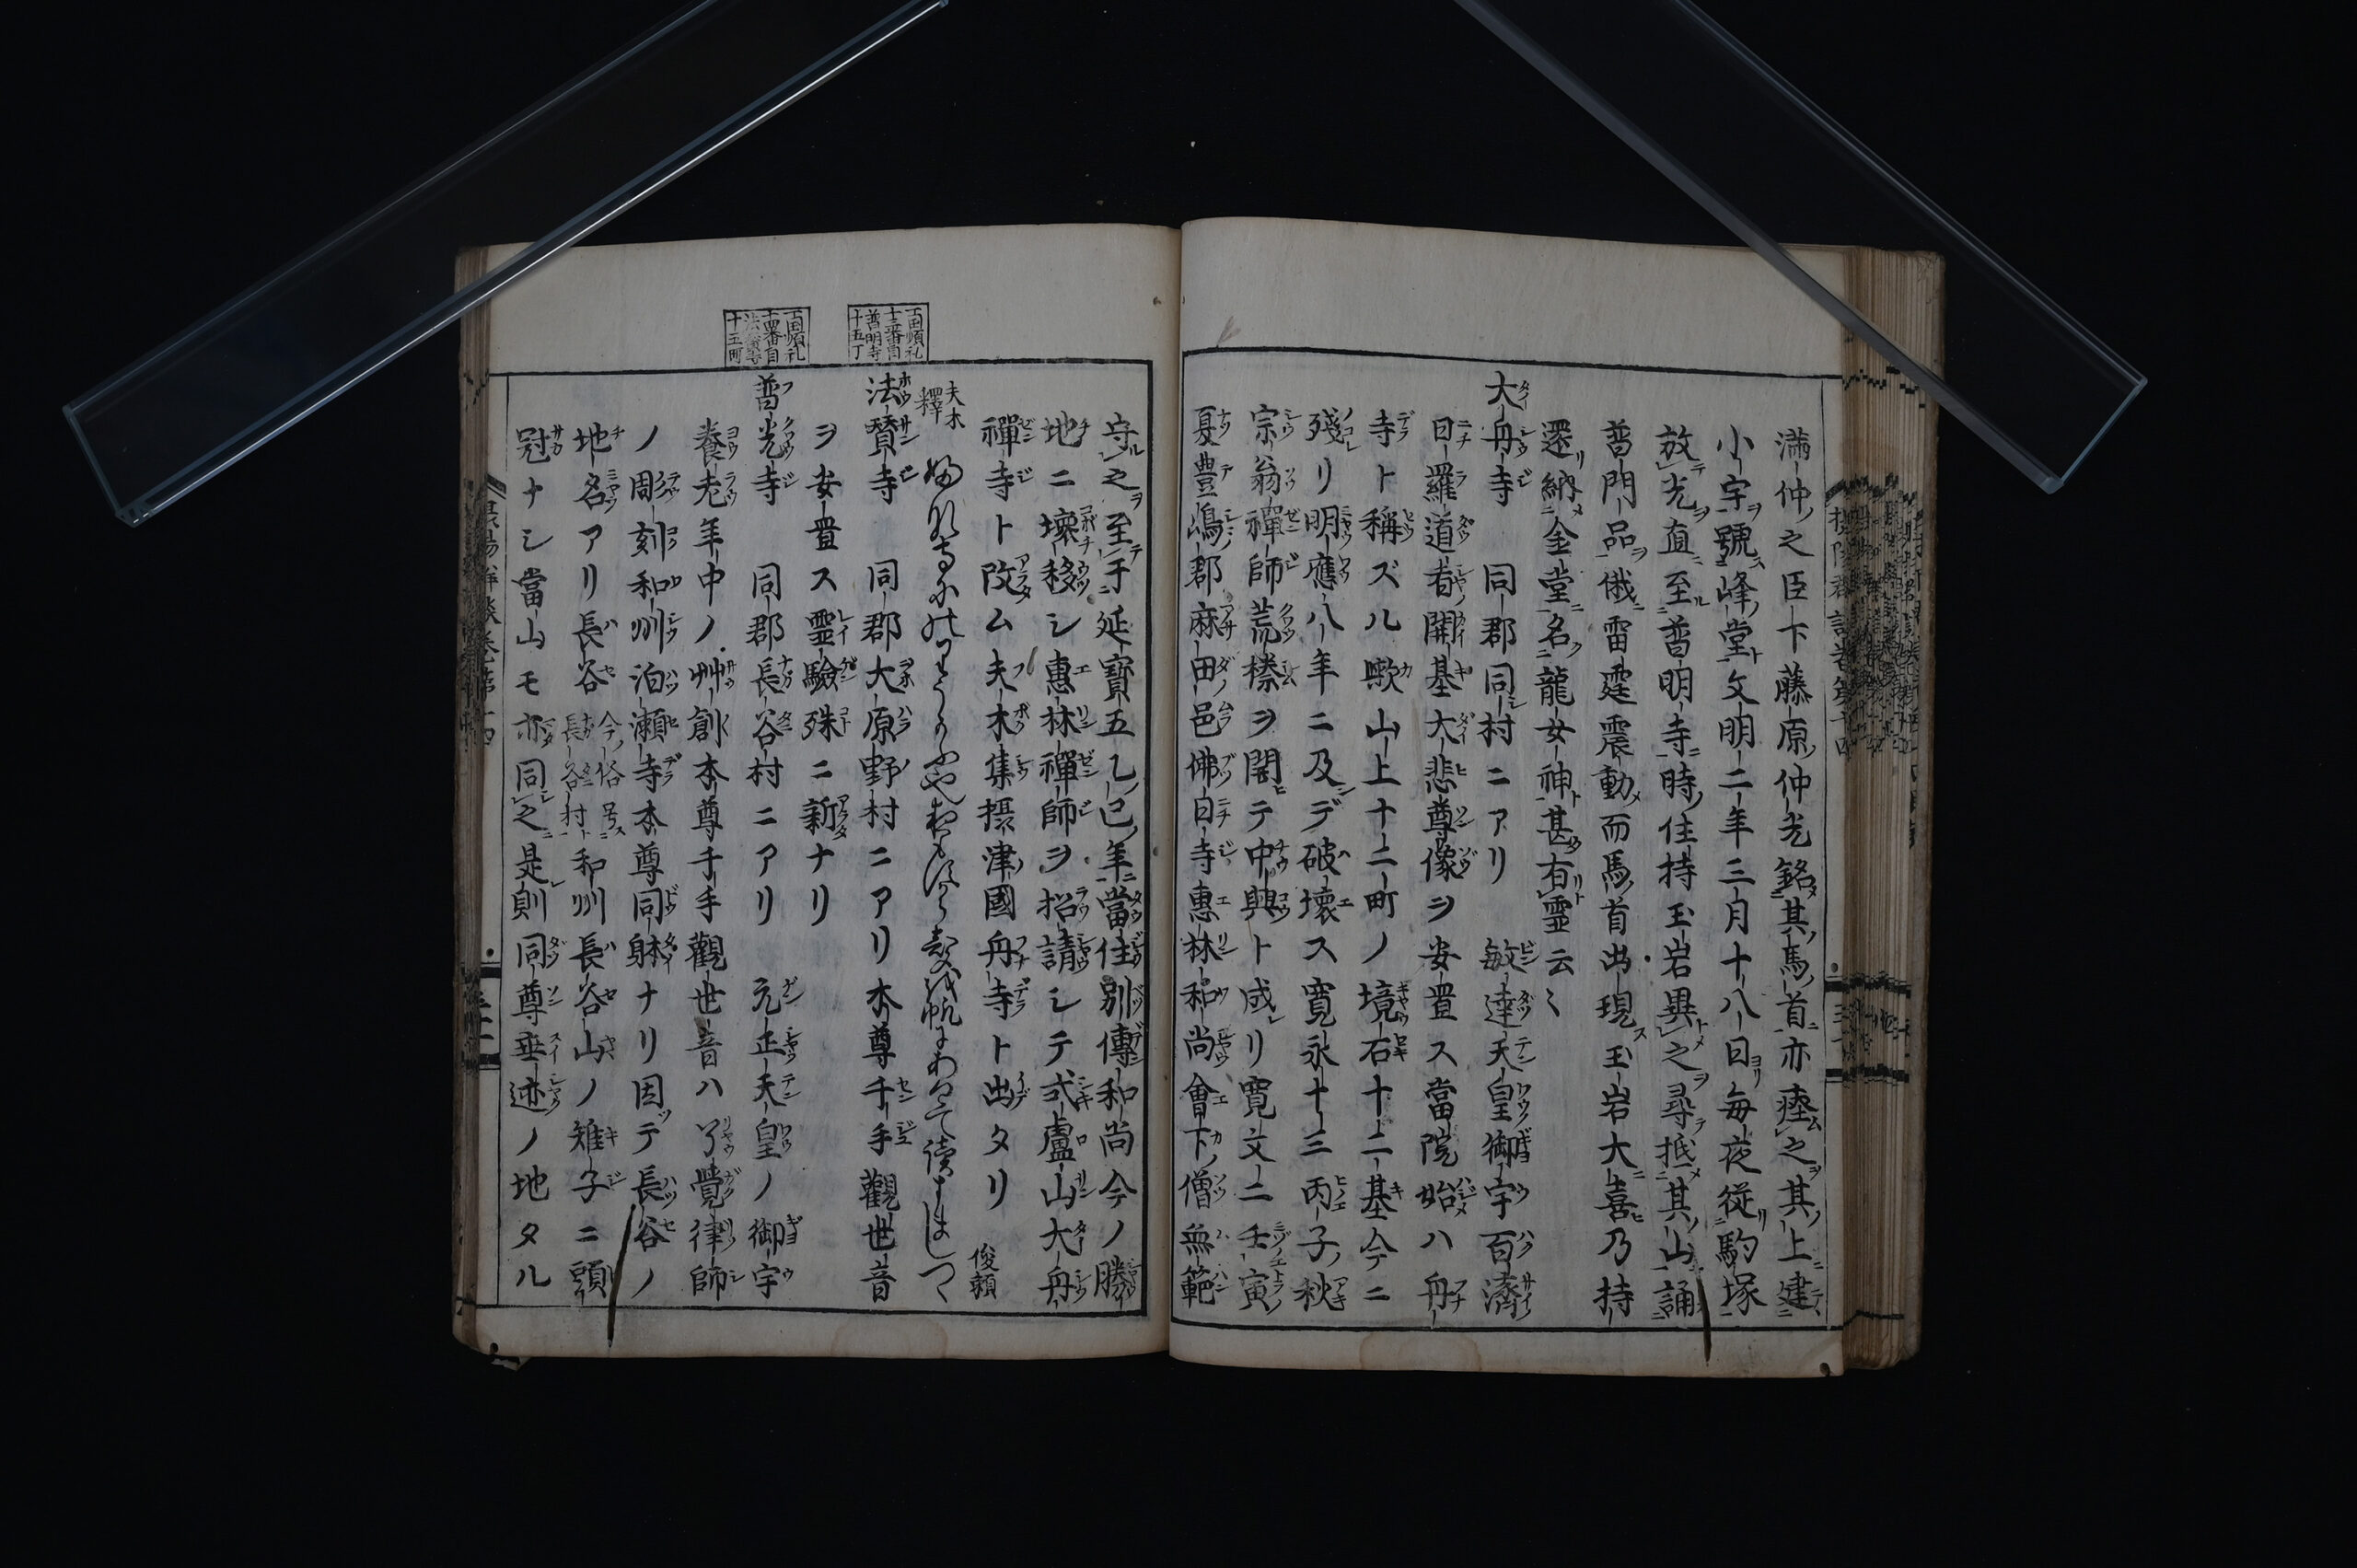 満仲之臣下藤原仲光銘其馬首亦瘞之其上建
小宇號峰堂文明二年三月十八日毎夜従駒塚
放光直至普明寺時住持玉岩異之尋抵其山誦
普門品俄雷霆震動而馬首出現玉岩大喜乃持
還納金堂名龍女神甚有霊云々
大舟寺 同郡同村ニアリ 敏達天皇御宇百濟
日羅道者開基大悲尊像ヲ安置ス當院始ハ舟
寺ト稱ズル歟山上十二町ノ境石十二基今ニ
殘リ明應八年ニ及デ破壊ス寛永十三丙子秋
宗翁禪師荒榛ヲ闢テ中興ト成レリ寛文二壬寅
夏豊嶋郡麻田邑佛日寺惠林和尚會下僧無範
守之至于延寶五乙巳年當住別傳和尚今ノ勝
地ニ壊移シ惠林禪師ヲ招請シテ式盧山大舟
禪寺ト改ム夫木集摂津國舟寺ト出タリ
夫木
釋
俊頼
法賛寺 同郡大原野村ニアリ本尊千手觀世音
ヲ安置ス霊驗殊ニ新ナリ
普光寺 同郡長谷村ニアリ 元正天皇ノ御宇
養老年中ノ艸創本尊千手觀世音ハ了覺律師
ノ彫刻和州泊瀬寺本尊同躰ナリ因テ長谷ノ
地名アリ長谷 今俗号長谷村 和州長谷山ノ雉子ニ頭
冠ナシ當山モ亦同之是則同尊垂迹ノ地タル